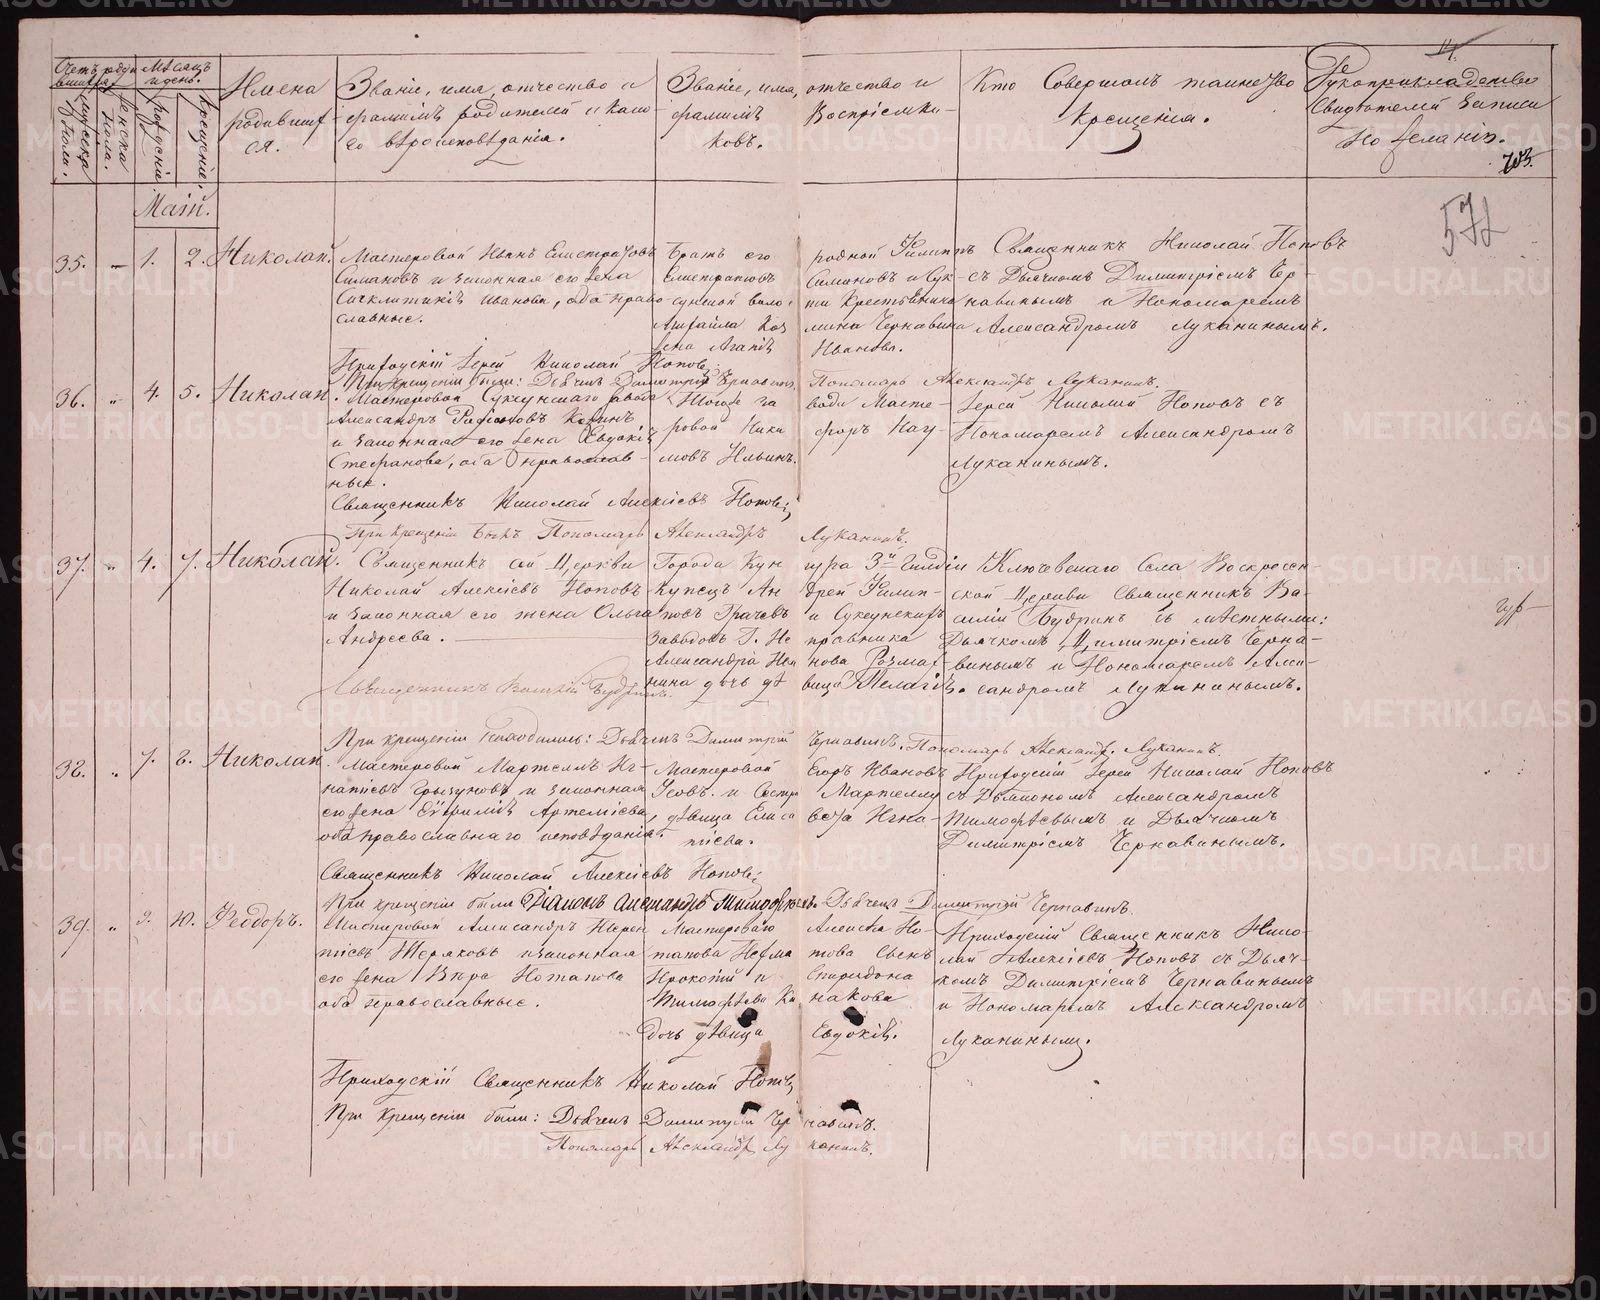 Счетъ роди
вшихся
Мужеска
пола.
Женска
пола.
Мѣсяцъ
и день.
рожденіе
Крещеніе.
Имена
родивших-
ся.
Званіе, имя, отчество и
фамилія родителей и како-
го вѣроисповѣданія.
Званіе, имя, отчество и
фамилія Воспріемни-
ковъ.
Кто Совершалъ таинство
Крещенія.
Рукоприкладство
Свидѣтелей Записи
По желанію.
703.
572
Май.
35. 1. 2. Николай.
Мастеровой Иванъ Елистратовъ
Симановъ и законная его жена
Синклитикія Иванова, оба право
славные.
Братъ его родной Филиппъ
Елистратовъ Симоновъ и Сук-
сунской воло-
жена Агапія Иванова.
Священникъ Николай Поповъ
съ Дьячкомъ Димитріемъ Чер-
навинымъ и Пономаремъ
Александромъ Луканинымъ.
Приходскій Іерей Николай Поповъ
При крещеніи были: Дьячекъ Димитрій Чернавинъ. Пономарь Александръ Луканинъ.
36. 4. 5. Николай.
Мастеровой Суксунскаго завода
Александръ
и законная его жена Евдокія
Стефанова, оба православ-
ные.
Тогоже за вода Масте-
ровой Ники форъ Нау-
мовъ Ильинъ.
Іерей Николай Поповъ съ
Пономаремъ Александромъ
Луканинымъ.
Священникъ Николай Алексіевъ Поповъ
При крещеніи былъ Пономарь Александръ Луканинъ.
37. 4. 7. Николай.
Священникъ сей Церкви
Николай Алексіевъ Поповъ
и законная его жена Ольга
Андреева.
Города Кун гура 3й Гильдіи
Купецъ Ан дрей Филип-
повъ Грачевъ и Суксунскихъ
Заводовъ Г. Ис правника
Александра
дочь дѣ вица Пелагія.
Ключевскаго Села Воскресен-
ской Церкви Священникъ Ва-
силій Будринъ съ мѣстными:
Дьячкомъ Димитріемъ Черна-
винымъ и Пономаремъ Алек-
сандромъ Луканинымъ.
Священникъ Василій Будринъ.
При крещеніи находились: Дьячекъ Димитрій Чернавинъ. Пономарь Александръ Луканинъ.
38. 7. 8. Николай
Мастеровой Маркеллъ Иг-
натьевъ и законная
его жена Евфимія Артемьева,
оба православнаго исповѣданія.
Мастеровой Егоръ Ивановъ
Усовъ и Сестра Маркеллу
дѣвица Елиса вета Игна-
тіева.
Приходскій Іерей Николай Поповъ
съ Діакономъ Александромъ
Тимофѣевымъ и Дьячкомъ
Димитріемъ Чернавинымъ.
Священникъ Николай Алексіевъ Поповъ
При крещеніи были Діаконъ Александръ Тимофѣевъ. Дьячекъ Димитрій Чернавинъ
39. 9. 10. Феодоръ.
Мастеровой Александръ Терен
тьевъ и законная
его жена Вѣра Потапова
оба православные.
Мастероваго Алексѣя По-
тапова сынъ
Прокопій и Спиридона
Тимофѣева
дочь дѣвица Евдокія.
Приходскій Священникъ Нико-
лай Алексіевъ Поповъ съ Дьяч-
комъ Димитріемъ Чернавинымъ
и Пономаремъ Александромъ
Луканинымъ.
Приходскій Священникъ Николай Поповъ
При крещеніи были: Дьячекъ Димитрій Чернавинъ.
Пономарь Александръ Луканинъ.
METRIKI.GASO-URAL.RU